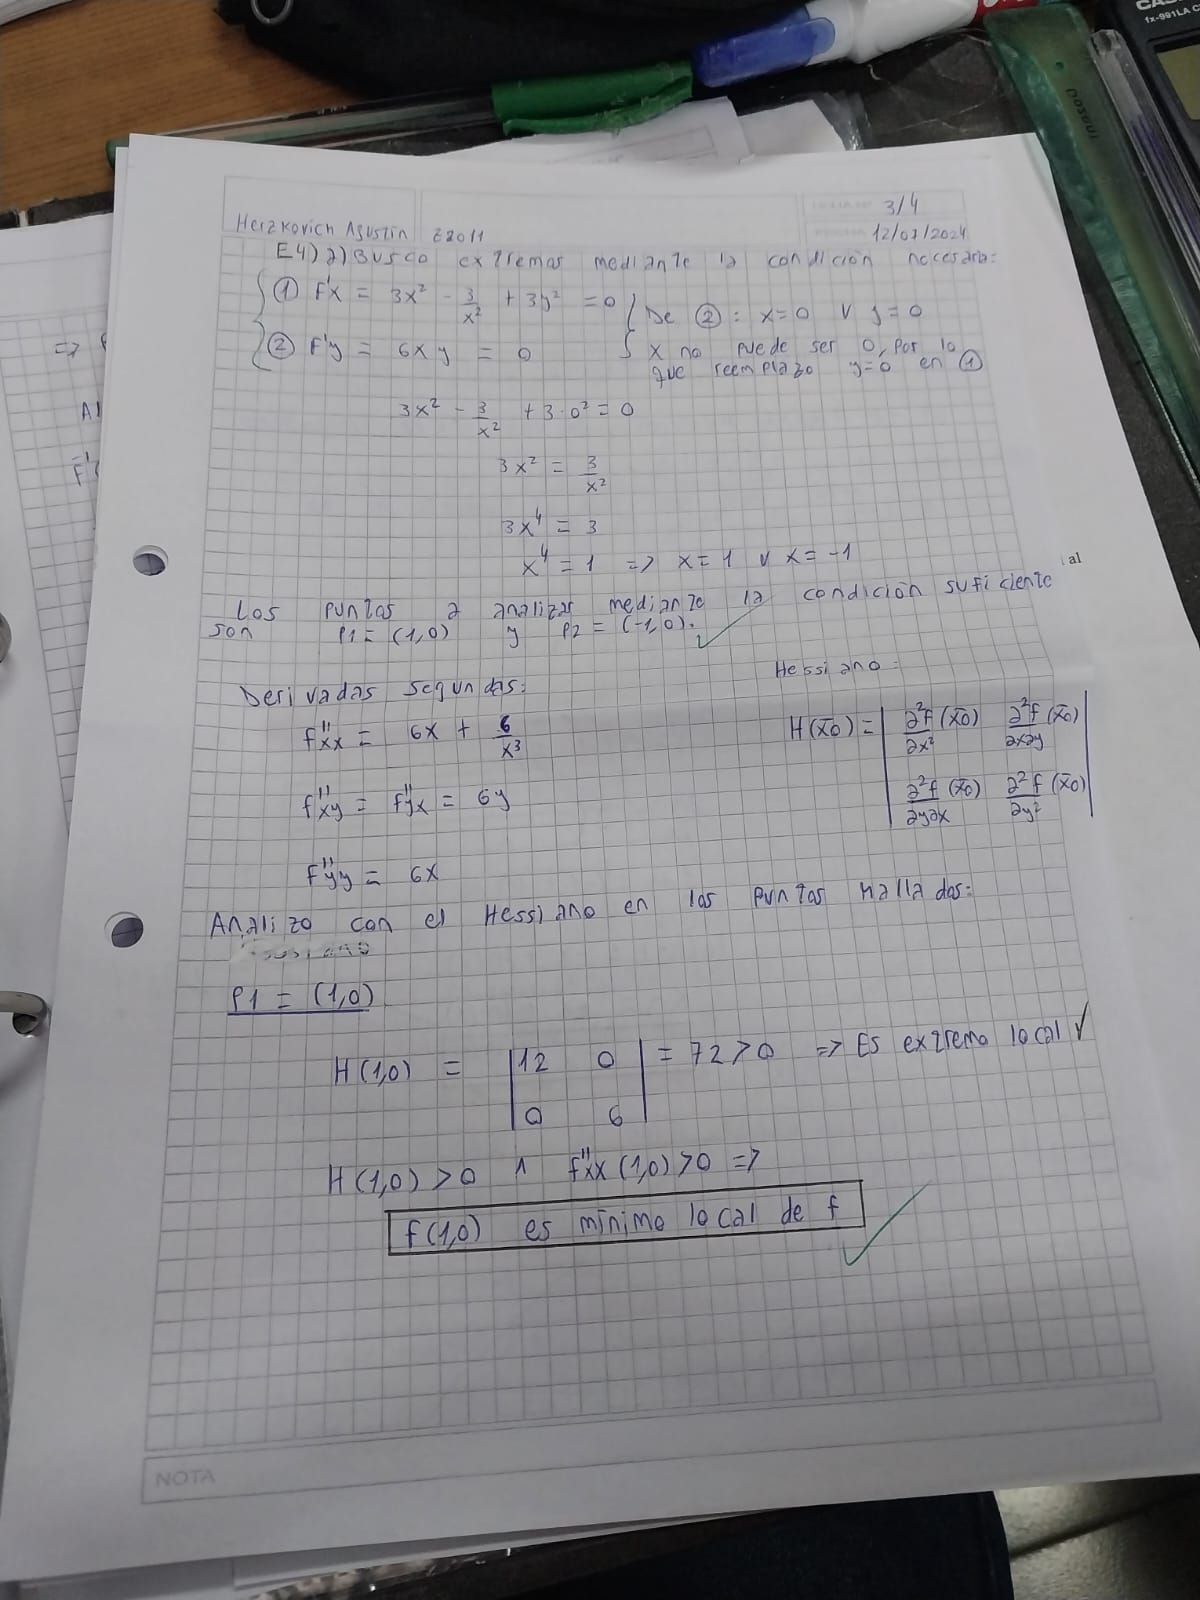 CAS
fx-991LA C
3/4
Herzkovich Agustin Z2011
12/07/2024
E4) a) Busco extremos mediante la condición necesaria:
① f'x = 3x² - 3/x² + 3y² = 0
De ②: x=0 v y=0
② f'y = 6xy = 0
x no puede ser 0, por lo
que reemplazo y=0 en ①
3x² - 3/x² + 3·0² = 0
3x² = 3/x²
3x⁴ = 3
x⁴ = 1 => x=1 v x=-1
al
Los puntos a analizar mediante la condición suficiente
son P1 = (1,0) y P2 = (-1,0).
Hessiano:
Derivadas segundas:
f''xx = 6x + 6/x³
H(x̄0) = | ∂²f/∂x² (x̄0) ∂²f/∂x∂y (x̄0) |
f''xy = f''yx = 6y
| ∂²f/∂y∂x (x̄0) ∂²f/∂y² (x̄0) |
f''yy = 6x
Analizo con el Hessiano en los puntos hallados:
P1 = (1,0)
H(1,0) = |12 0| = 72>0 => Es extremo local
|0 6|
H(1,0)>0 ∧ f''xx(1,0)>0 =>
f(1,0) es mínimo local de f
NOTA